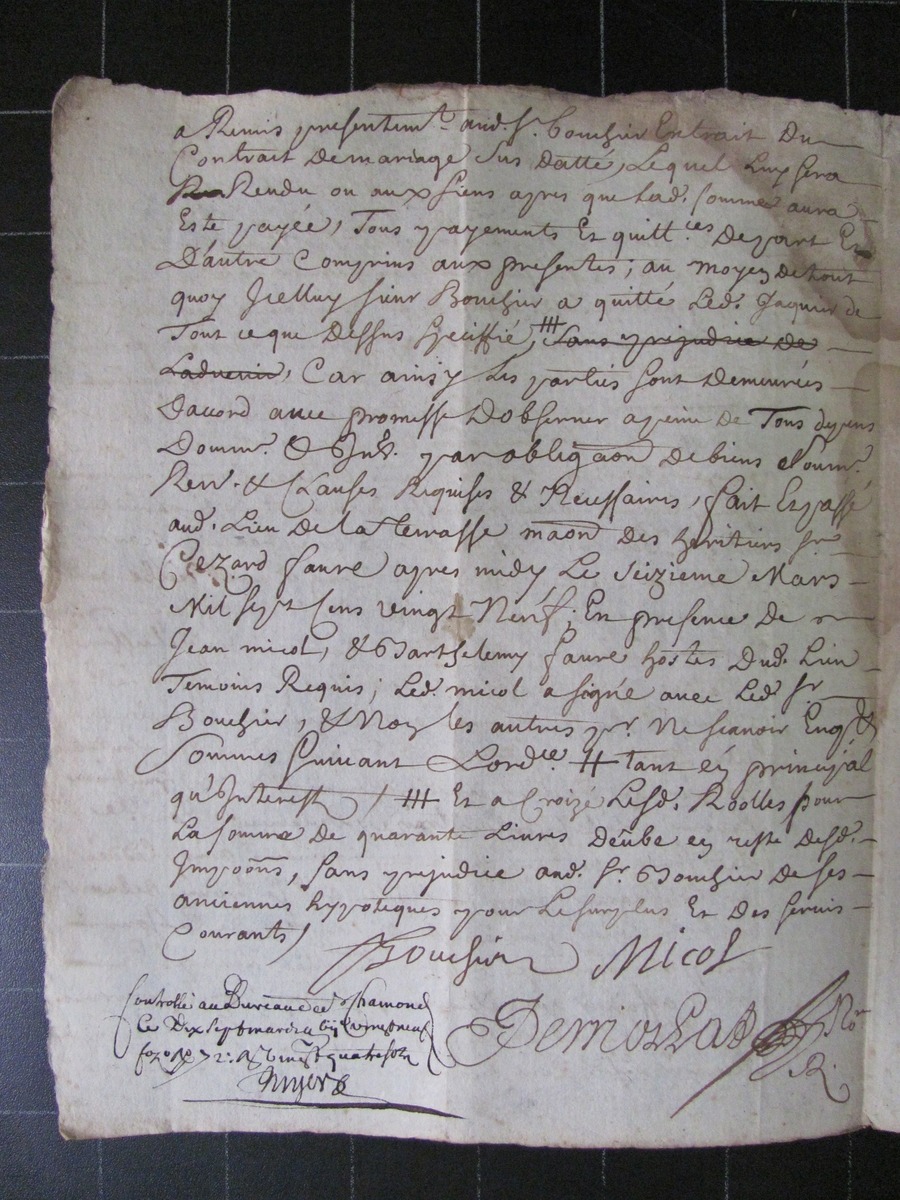 a Remis presentem.t aud. Sr. bouchier Extrait Du
Contrait de mariage Sus datté, Lequel Luy sera
Rendu ou aux siens apres que lad. Somme aura
Este payée, Tous payements Et quitt.ces De part Et
D'autre Comprins aux presentes; au moyen de tout
quoy Icelluy sieur Bouchier a quitté Led. Jaquier de
Tout ce que Dessus speciffié, # Sans prejudice de
Ladvenir, Car ainsy les parties sont Demeurées
Dacord avec promesse D'observer a peine de Tous depens
Domm. & Int. par obligaõn de biens soum.
Ren. & Clauses Requises & Necessaires, fait Et passé
aud. Lieu De la terrasse maõn des heritiers Sr.
Cezard faure apres midy Le Seizieme Mars
Mil sept Cens vingt Neuf; En presence De
Jean micol, & Barthelemy faure hostes Dud. Lieu
Temoins Requis; Led. micol a signé avec Led. Sr.
Bouchier, & Non les autres pr. Ne scavoir Enq. &
Sommes suivant Lord.ce # tant en principal
qu'Interest / # Et a Croizé Lesd. Roolles pour
La somme de quarante Livres Deube en reste desd.
Impoõns, sans prejudice aud. Sr. Bouchier De ses
anciennes hypoteques pour Le surplus Et Des servis
Courants /
Bouchier Micol
Controllé au Bureau de St Chamond
Le Dix sept mars
quatre sols